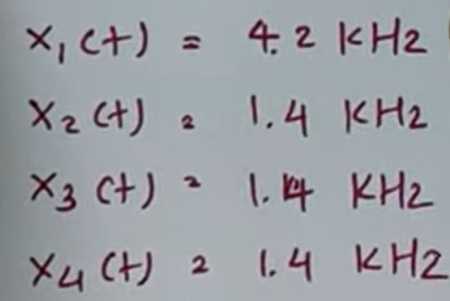 x₁(t) = 4.2 KHz
x₂(t) = 1.4 KHz
x₃(t) = 1.4 KHz
x₄(t) = 1.4 KHz